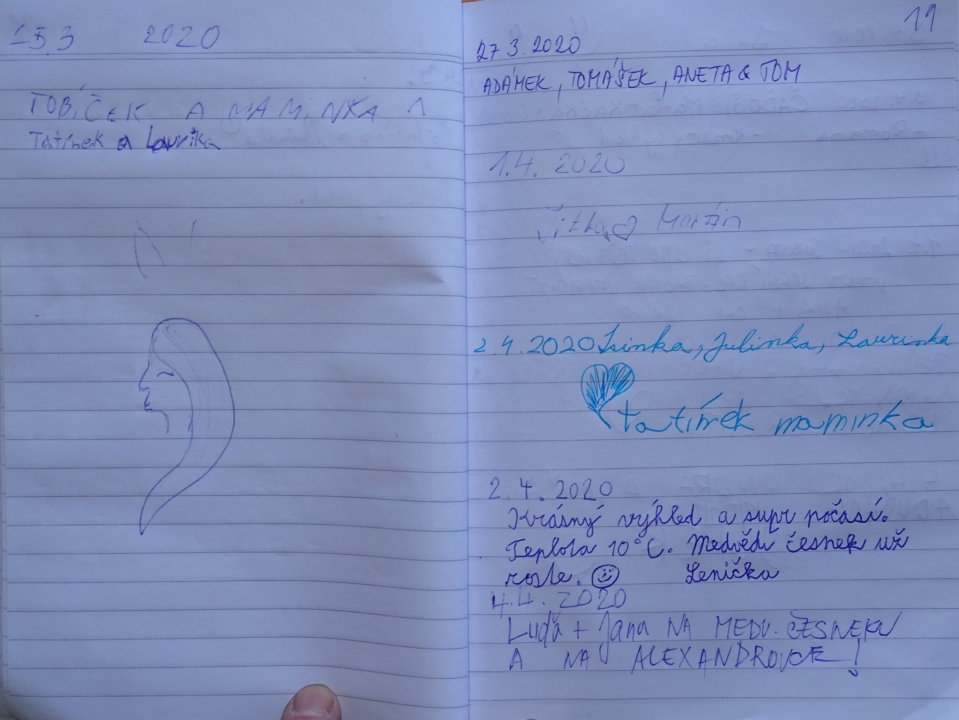 15.3 2020
TOBÍČEK A MAMINKA A
Tatínek a Laurika
11
27 3. 2020
ADÁMEK, TOMÁŠEK, ANETA & TOM
1.4. 2020
Jitka a Martin
2.4.2020 Julinka, Laurinka
tatínek maminka
2.4.2020
Krásný výhled a supr počasí.
Teplota 10°C. Medvědí česnek už
roste. Lenička
4.4.2020
Luďa + Jana NA MEDV. ČESNEKU
A NA ALEXANDROVCE!